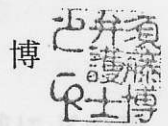 博
藤博
弁護士
之印